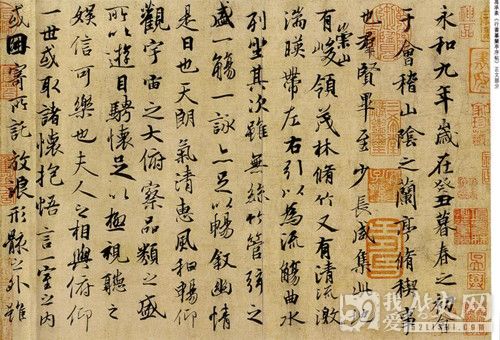 永和九年歲在癸丑暮春之初會
于會稽山陰之蘭亭脩稧事
也群賢畢至少長咸集此地
有崇山峻領茂林脩竹又有清流激
湍暎帶左右引以為流觴曲水
列坐其次雖無絲竹管弦之
盛一觴一詠亦足以暢叙幽情
是日也天朗氣清惠風和暢仰
觀宇宙之大俯察品類之盛
所以遊目騁懷足以極視聽之
娛信可樂也夫人之相與俯仰
一世或取諸懷抱悟言一室之內
或因寄所託放浪形骸之外雖